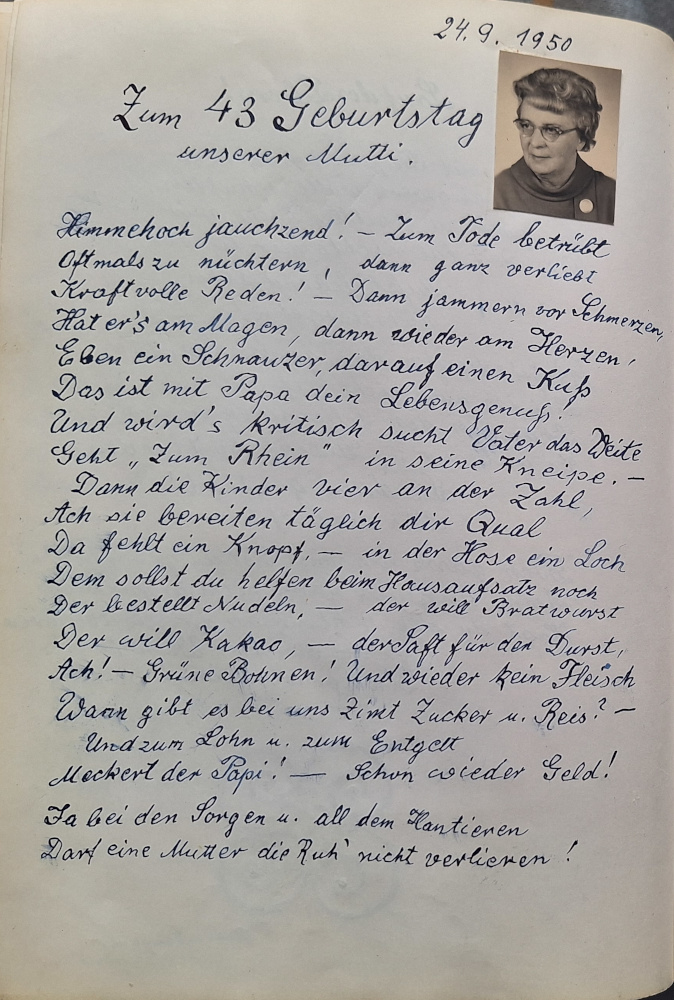 24.9.1950
Zum 43 Geburtstag
unserer Mutti.
Himmehoch jauchzend! – Zum Tode betrübt
Oftmals zu nüchtern, dann ganz verliebt
Kraftvolle Reden! – Dann jammern vor Schmerzen,
Hat er's am Magen, dann wieder am Herzen,
Eben ein Schnauzer, darauf einen Kuß
Das ist mit Papa dein Lebensgenuß!
Und wird's kritisch sucht Vater das Weite
Geht „Zum Rhein" in seine Kneipe. –
Dann die Kinder vier an der Zahl,
Ach sie bereiten täglich dir Qual
Da fehlt ein Knopf, – in der Hose ein Loch
Dem sollst du helfen beim Hausaufsatz noch
Der bestellt Nudeln, – der will Bratwurst
Der will Kakao, – der Saft für den Durst,
Ach! – Grüne Bohnen! Und wieder kein Fleisch
Wann gibt es bei uns Zimt Zucker u. Reis? –
Und zum Lohn u. zum Entgelt
Meckert der Papi! – Schon wieder Geld!
Ja bei den Sorgen u. all dem Hantieren
Darf eine Mutter die Ruh' nicht verlieren!